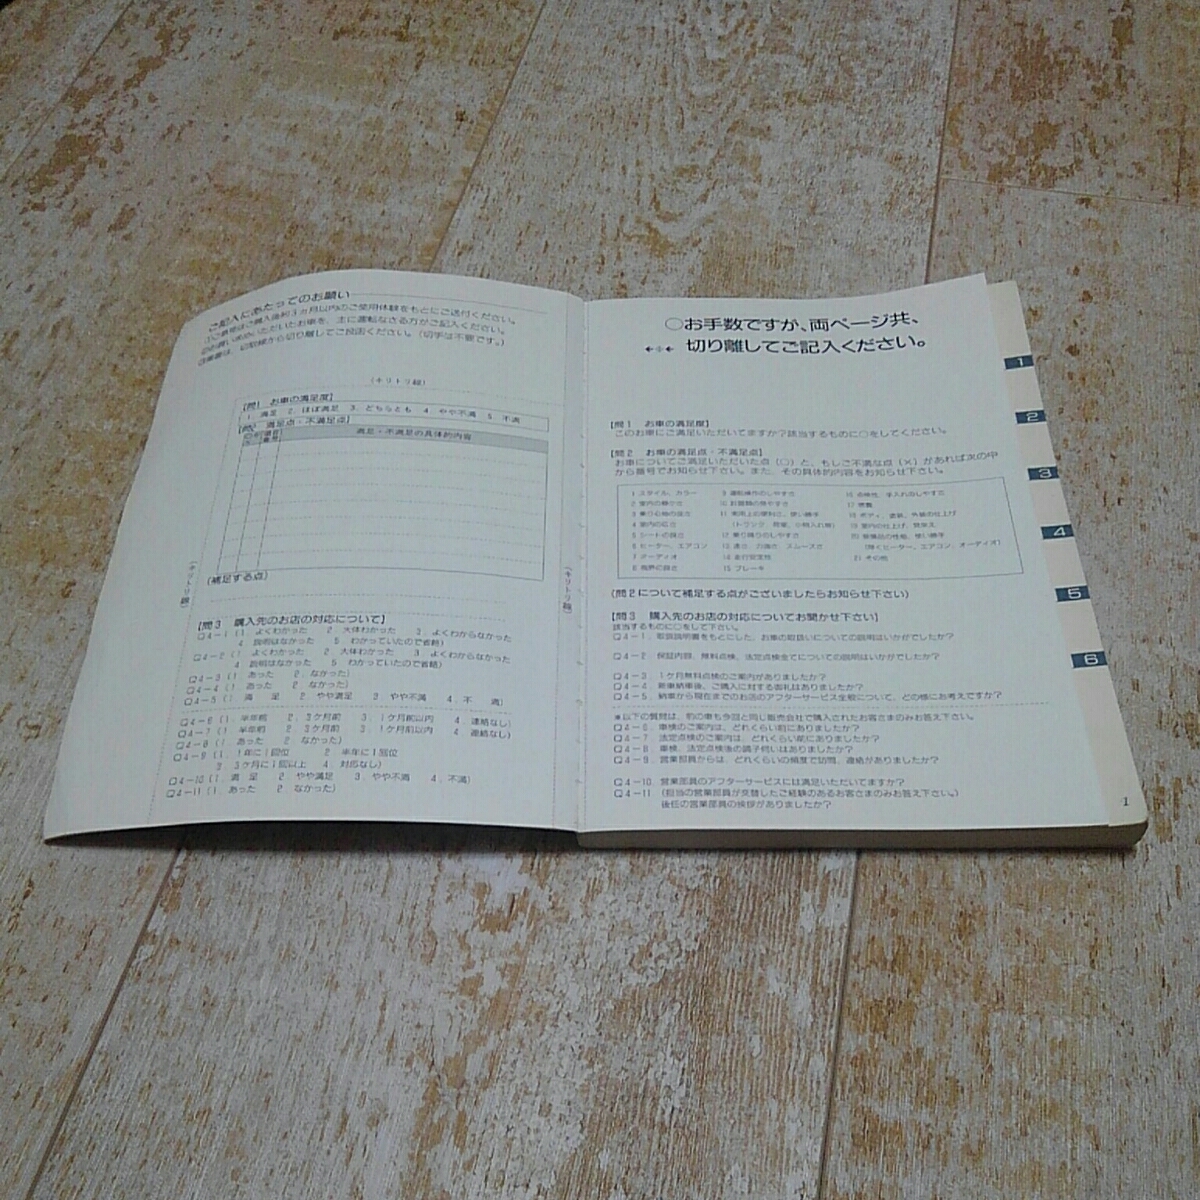 ご記入にあたってのお願い
①ご感想はご購入後約3ヵ月以内のご使用体験をもとにご送付ください。
②お買い求めいただいたお車を、主に運転なさる方がご記入ください。
③葉書は、切取線から切り離してご投函ください。（切手は不要です。）
（キリトリ線）
【問1　お車の満足度】
1．満足　2．ほぼ満足　3．どちらとも　4．やや不満　5．不満
【問2　満足点・不満足点】
満足・不満足の具体的内容
（補足する点）
（キリトリ線）
（キリトリ線）
【問3　購入先のお店の対応について】
Q4－1（1．よくわかった　2．大体わかった　3．よくわからなかった
4．説明はなかった　5．わかっていたので省略）
Q4－2（1．よくわかった　2．大体わかった　3．よくわからなかった
4．説明はなかった　5．わかっていたので省略）
Q4－3（1．あった　2．なかった）
Q4－4（1．あった　2．なかった）
Q4－5（1．満　足　2．やや満足　3．やや不満　4．不　満）
Q4－6（1．半年前　2．3ケ月前　3．1ケ月前以内　4．連絡なし）
Q4－7（1．半年前　2．3ケ月前　3．1ケ月前以内　4．連絡なし）
Q4－8（1．あった　2．なかった）
Q4－9（1．1年に1回位　2．半年に1回位
3．3ケ月に1回以上　4．対応なし）
Q4－10（1．満　足　2．やや満足　3．やや不満　4．不満）
Q4－11（1．あった　2．なかった）
○お手数ですが、両ページ共、
切り離してご記入ください。
【問1　お車の満足度】
このお車にご満足いただいてますか？該当するものに○をしてください。
【問2　お車の満足点・不満足点】
お車についてご満足いただいた点（○）と、もしご不満な点（×）があれば次の中
から番号でお知らせ下さい。また、その具体的内容をお知らせ下さい。
1 スタイル、カラー
2 室内の静かさ
3 乗り心地の良さ
4 室内の広さ
5 シートの良さ
6 ヒーター、エアコン
7 オーディオ
8 視界の良さ
9 運転操作のしやすさ
10 計器類の見やすさ
11 実用上の便利さ、使い勝手
（トランク、荷室、小物入れ等）
12 乗り降りのしやすさ
13 速さ、力強さ、スムーズさ
14 走行安定性
15 ブレーキ
16 点検性、手入れのしやすさ
17 燃費
18 ボディ、塗装、外装の仕上げ
19 室内の仕上げ、見栄え
20 装備品の性能、使い勝手
（除くヒーター、エアコン、オーディオ）
21 その他
（問2について補足する点がございましたらお知らせ下さい）
【問3　購入先のお店の対応についてお聞かせ下さい】
該当するものに○をして下さい。
Q4－1．取扱説明書をもとにした、お車の取扱いについての説明はいかがでしたか？
Q4－2．保証内容、無料点検、法定点検全てについての説明はいかがでしたか？
Q4－3．1ケ月無料点検のご案内がありましたか？
Q4－4．新車納車後、ご購入に対する御礼はありましたか？
Q4－5．納車から現在までのお店のアフターサービス全般について、どの様にお考えですか？
＊以下の質問は、前の車も今回と同じ販売会社で購入されたお客さまのみお答え下さい。
Q4－6．車検のご案内は、どれくらい前にありましたか？
Q4－7．法定点検のご案内は、どれくらい前にありましたか？
Q4－8．車検、法定点検後の調子伺いはありましたか？
Q4－9．営業部員からは、どれくらいの頻度で訪問、連絡がありましたか？
Q4－10．営業部員のアフターサービスには満足いただいてますか？
Q4－11．（担当の営業部員が交替したご経験のあるお客さまのみお答え下さい。）
後任の営業部員の挨拶がありましたか？
1
1
2
3
4
5
6